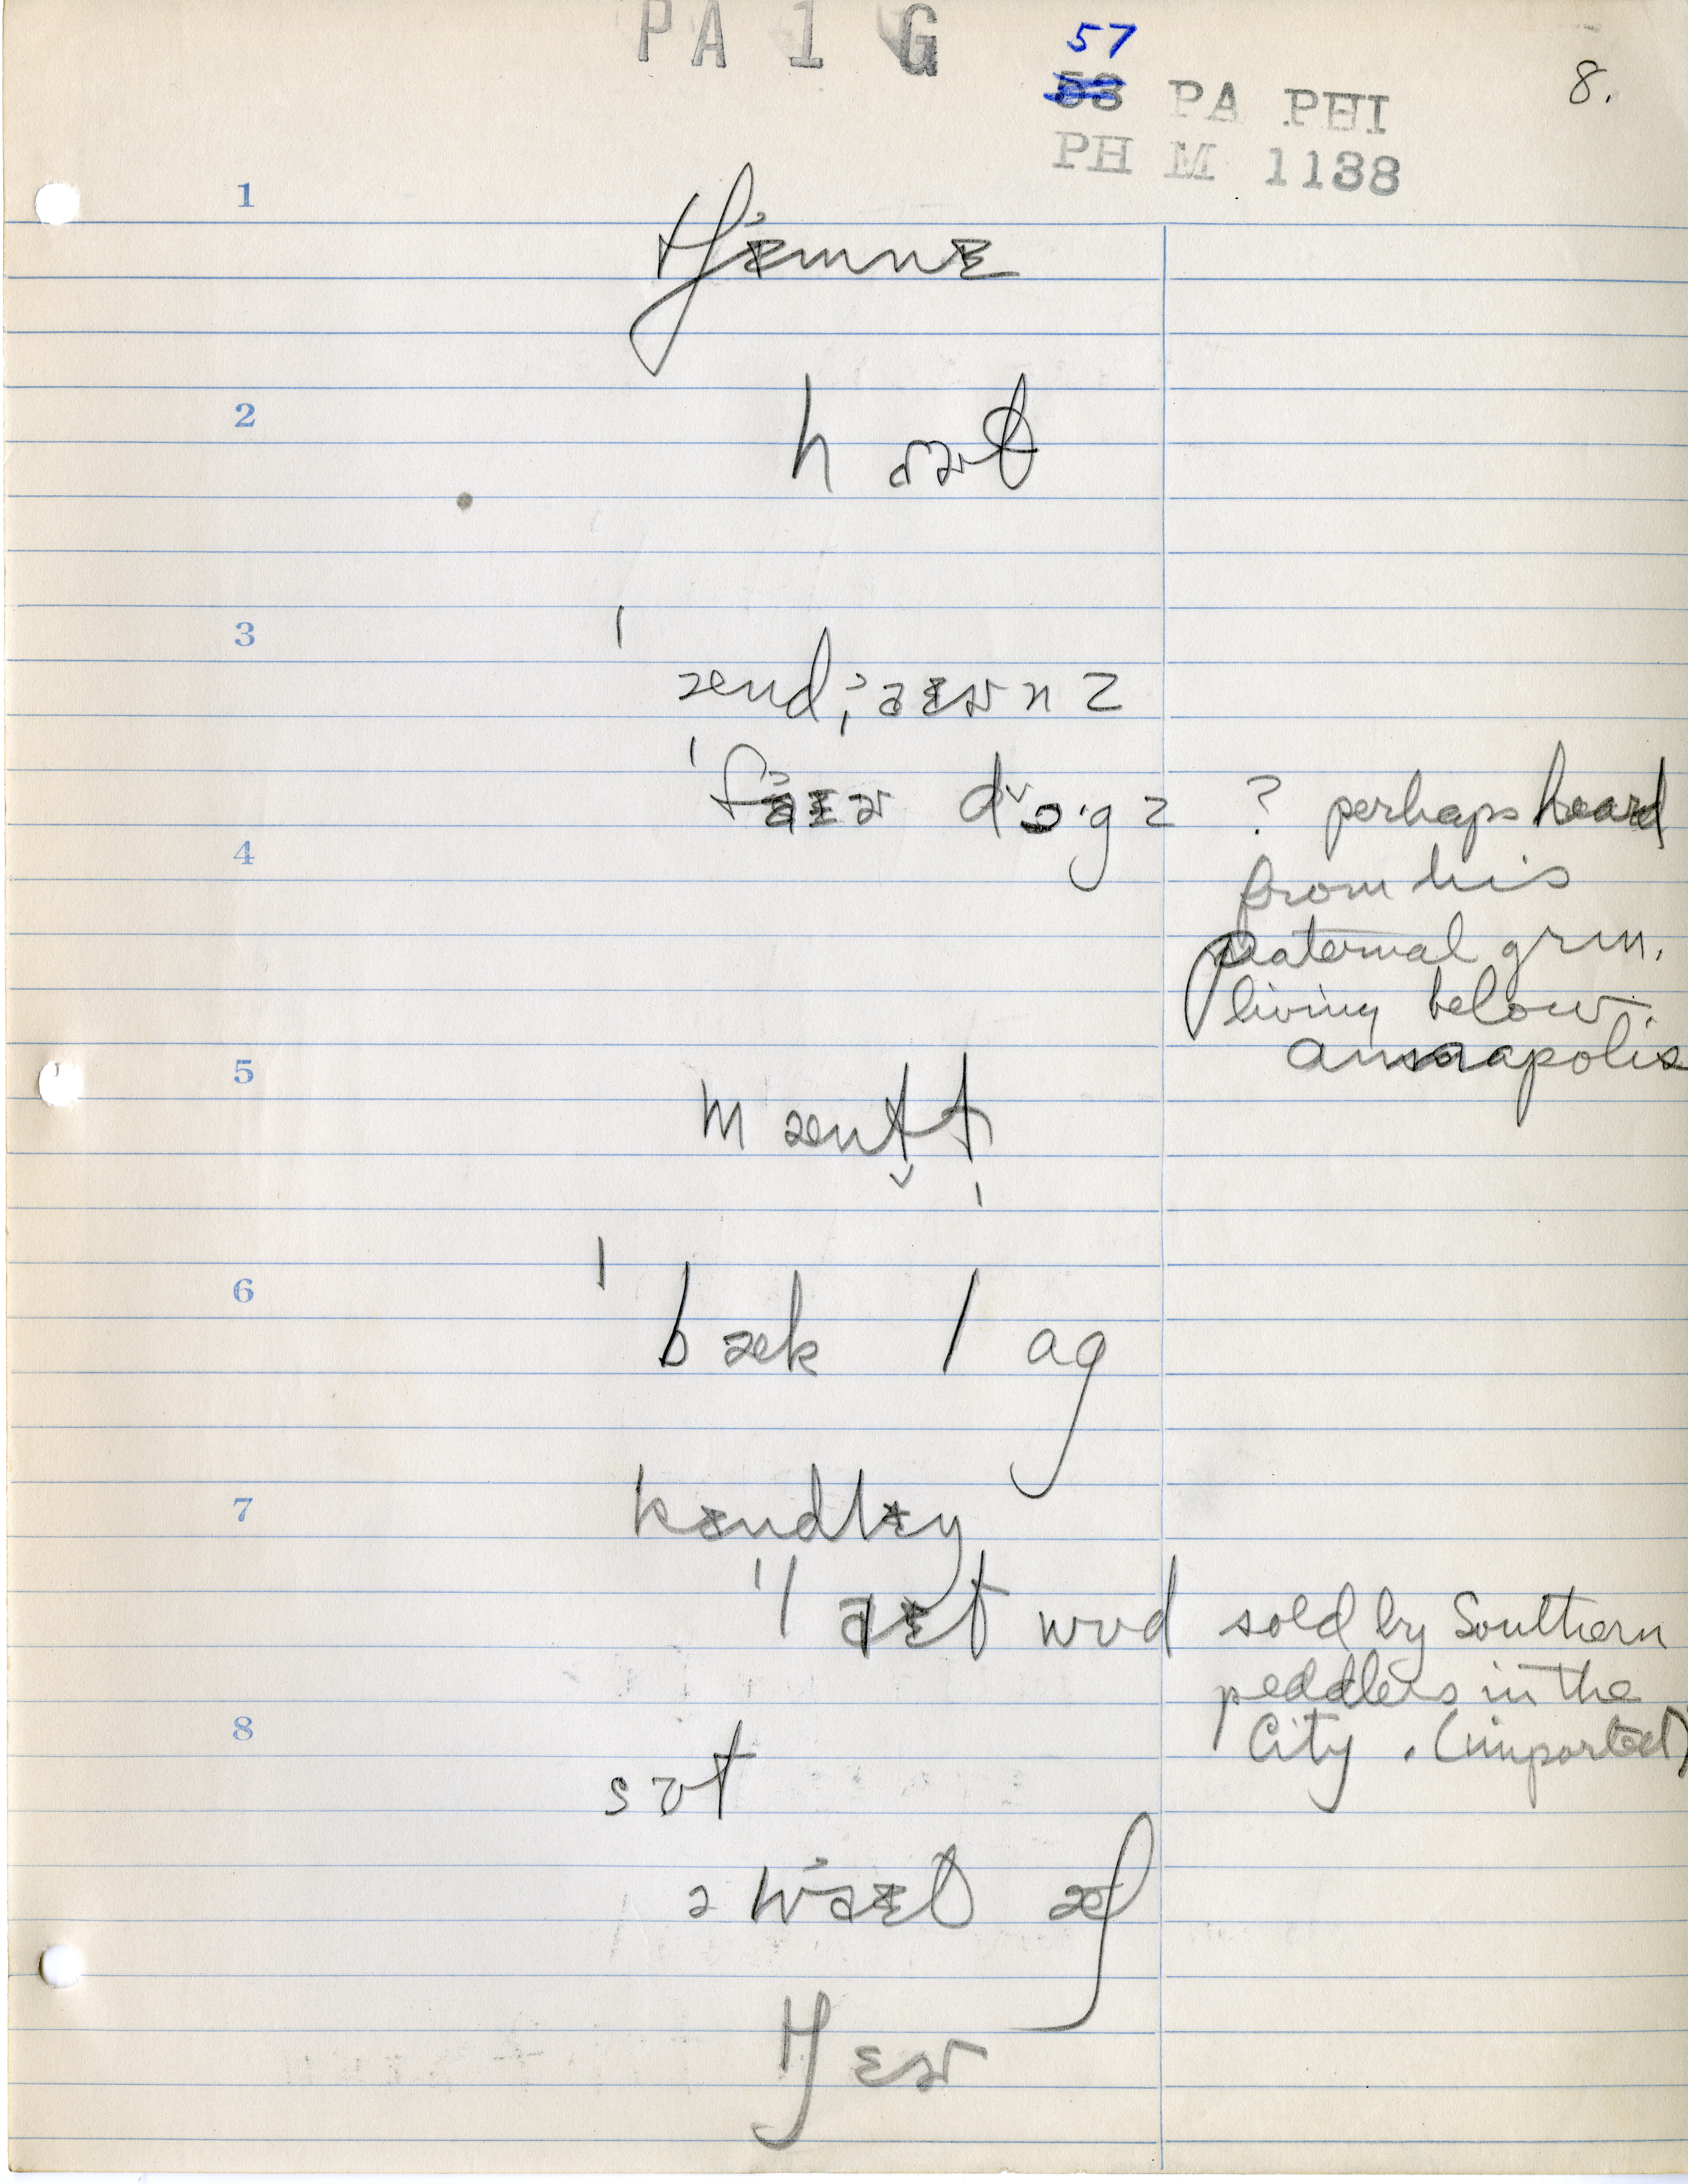 PA 1 G
57
58 PA PHI
8.
PH M 1138
1
tʃɪ˒mnɪ
2
hɑɚθ
3
ˈænd;aɪɚnz
ˈfaɪɚ dɔ·gz ? perhaps heard
4
from his
paternal grm.
living below
Annapolis
5
mæntl̩
6
ˈbæk lɑg
7
kɪndlɪŋ
ˈlaɪt wʊd sold by Southern
peddlers in the
8
City . (imported)
sʊt
ə waɪt æʃ
tʃɛɚ